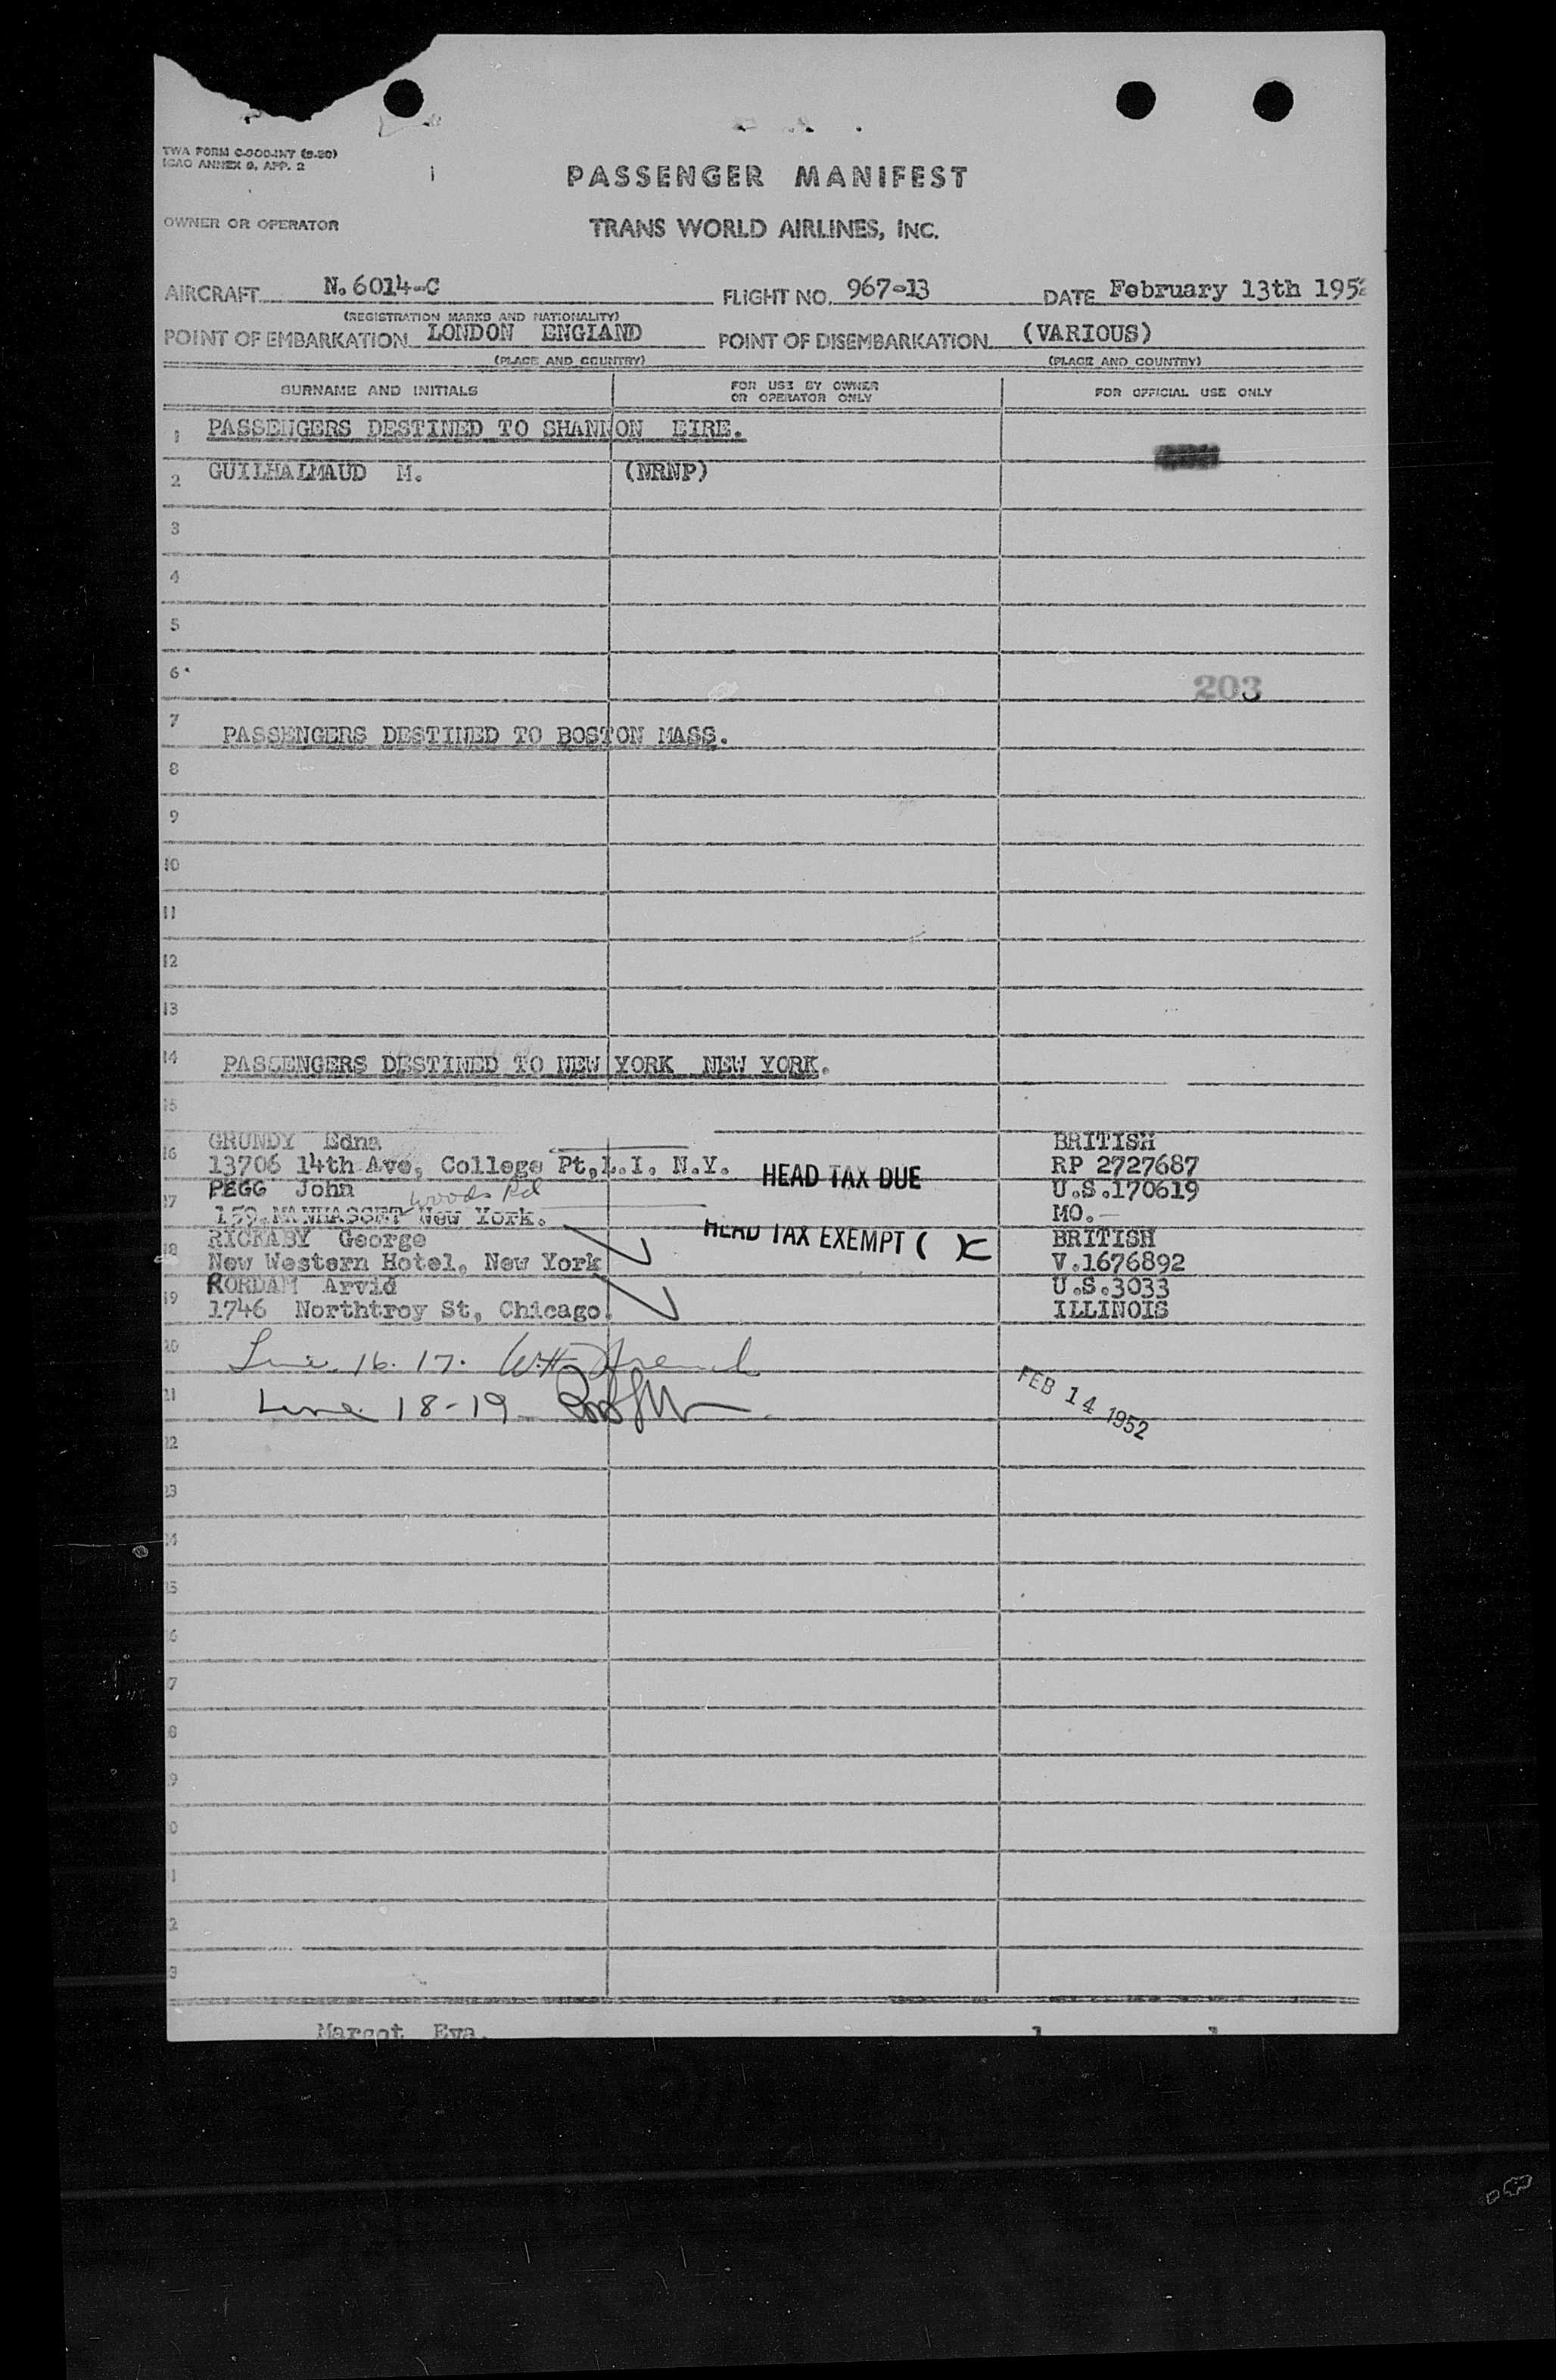 TWA FORM
ICAO ANNEX 9, APP. 2
PASSENGER MANIFEST
OWNER OR OPERATOR
TRANS WORLD AIRLINES, INC.
AIRCRAFT N. 6014-C FLIGHT NO. 967-13 DATE February 13th 1952
(REGISTRATION MARKS AND NATIONALITY)
POINT OF EMBARKATION LONDON ENGLAND POINT OF DISEMBARKATION (VARIOUS)
(PLACE AND COUNTRY) (PLACE AND COUNTRY)
SURNAME AND INITIALS FOR USE BY OWNER OR OPERATOR ONLY FOR OFFICIAL USE ONLY
1 PASSENGERS DESTINED TO SHANNON EIRE.
2 GUILHALMAUD M. (NRNP)
3
4
5
6
203
7 PASSENGERS DESTINED TO BOSTON MASS.
8
9
10
11
12
13
14 PASSENGERS DESTINED TO NEW YORK NEW YORK.
15
GRUNDY Edna BRITISH
16 13706 14th Ave, College Pt, L.I. N.Y. HEAD TAX DUE RP 2727687
PEGG John U.S.170619
Woods Rd
17 159. MANHASSET New York. MO.
RICKABY George HEAD TAX EXEMPT ( ) BRITISH
18 New Western Hotel, New York V.1676892
RORDAM Arvid U.S.3033
19 1746 Northtroy St, Chicago. ILLINOIS
20 Line. 16. 17.
21 Line 18-19
FEB 14 1952
22
23
24
25
6
7
8
9
0
1
2
3
Margot Eva.